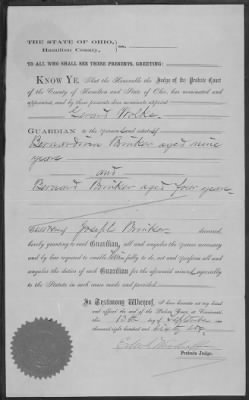 THE STATE OF OHIO,
Hamilton County, ss.
TO ALL WHO SHALL SEE THESE PRESENTS, GREETING:
KNOW YE, That the Honorable the Judge of the Probate Court
of the County of Hamilton and State of Ohio, has nominated and
appointed, and by these presents does nominate appoint
Gerard
GUARDIAN to the person and estate of
Bernardina Brinker aged nine
years
and
Bernard Brinker aged four years
Joseph Brinker deceased,
hereby granting to said Guardian, all and singular the powers necessary
and by law required to enable him fully to do, act and perform all and
singular the duties of such Guardian for the aforesaid minors, especially
to the Statute in such case made and provided.
In Testimony Whereof, I have hereunto set my hand
and affixed the seal of the Probate Court, at Cincinnati,
this 13th day of September
one thousand eight hundred and sixty
Probate Judge.